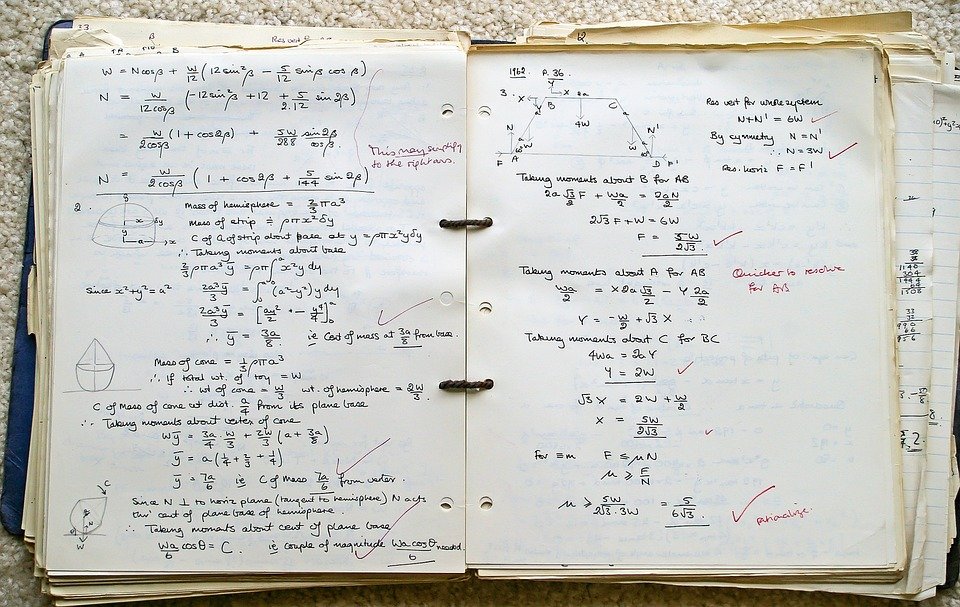 33
Res vert
W = Ncosβ + W/12 (12 sin²β − 5/12 sinβ cosβ)
N = W/12cosβ (−12sin²β + 12 + 5/2.12 sin 2β)
= W/2cosβ (1 + cos2β) + 5W/288 sin2β/cosβ.
This may simplify
to the right ans.
N = W/2cosβ (1 + cos2β + 5/144 sin 2β)
2.
Mass of hemisphere = 2/3 πa³
mass of strip = ρπx²δy
C of G of strip about base at y = ρπx²yδy
∴ Taking moments about base
2/3 ρπa³ȳ = ρπ∫x²y dy
Since x²+y²=a²
2a³ȳ/3 = ∫(a²−y²)y dy
∴ ȳ = 3a/8 ie Cent of mass at 3a/8 from base.
Mass of cone = 1/3 ρπa³
∴ If total wt. of toy = W
∴ wt of cone = W/3 wt. of hemisphere = 2W/3.
C of Mass of cone at dist. a/4 from its plane base
∴ Taking moments about vertex of cone
Wȳ = 3a/4 . W/3 + 2W/3 (a + 3a/8)
ȳ = a(1/4 + 2/3 + 1/4)
ȳ = 7a/6 ie C of Mass 7a/6 from vertex.
Since N ⊥ to horiz plane (tangent to hemisphere) N acts
thro' cent of plane base of hemisphere.
∴ Taking moments about cent of plane base
Wa/6 cosθ = C. ie couple of magnitude Wa cosθ/6 needed.
12.
1962. P. 36
3.
X
Y
X
2a
B
C
4W
N
N'
W
W
F
A
D
F'
Res vert for whole system
N+N' = 6W
By symmetry N = N'
∴ N = 3W
Res. horiz F = F'
Taking moments about B for AB
2a√3/2 F + Wa/2 = 2aN/2
2√3F + W = 6W
F = 5W/2√3.
Taking moments about A for AB
Quicker to resolve
for AB
Wa/2 = X2a√3/2 − Y 2a/2
Y = −W/2 + √3 X
Taking moments about C for BC
4Wa = 2aY
Y = 2W
√3X = 2W + W/2
X = 5W/2√3
For ≡m F ≤ μN
μ ≥ F/N
μ ≥ 5W/2√3.3W = 5/6√3.
rationalize.